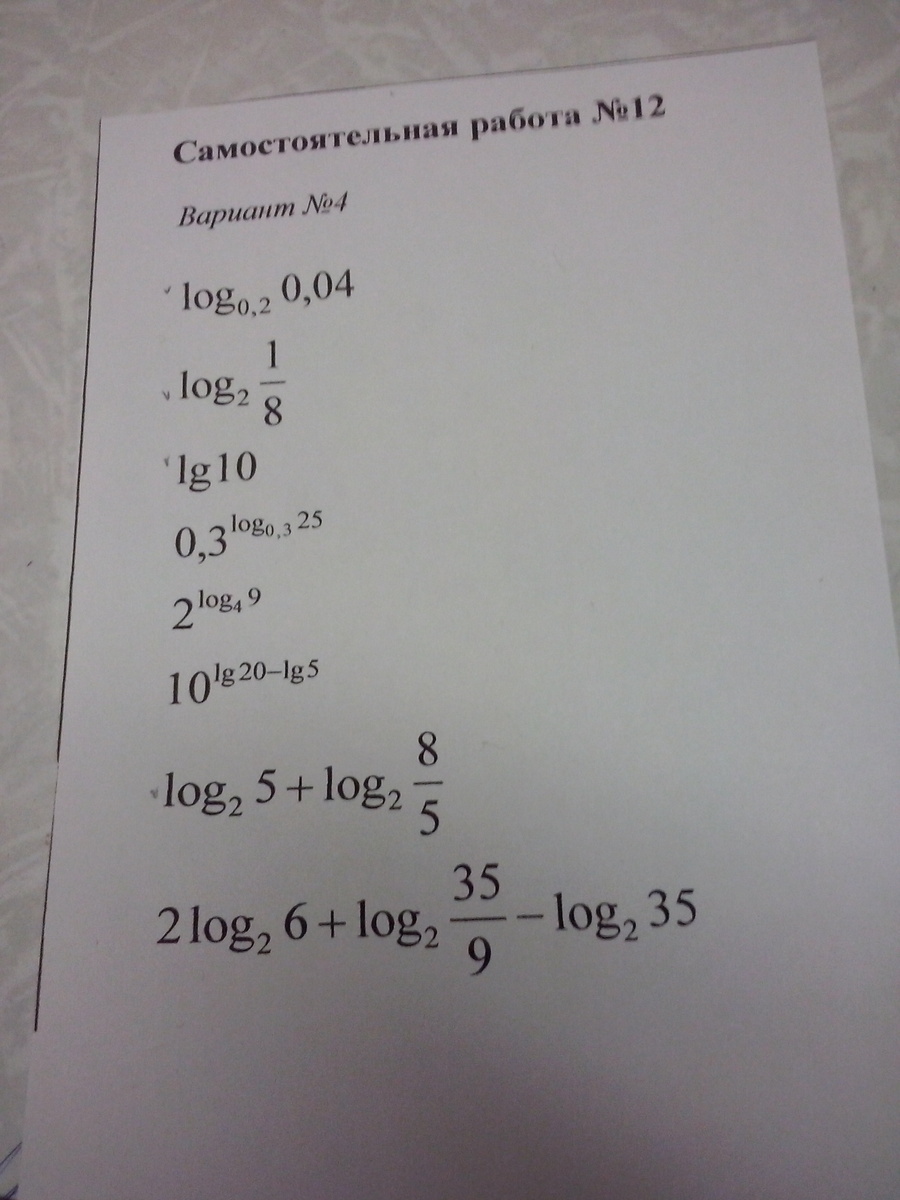 Самостоятельная работа №12
Вариант №4
log₀,₂ 0,04
log₂ 1/8
lg10
0,3^(log₀,₃ 25)
2^(log₄ 9)
10^(lg20−lg5)
log₂ 5 + log₂ 8/5
2log₂ 6 + log₂ 35/9 − log₂ 35